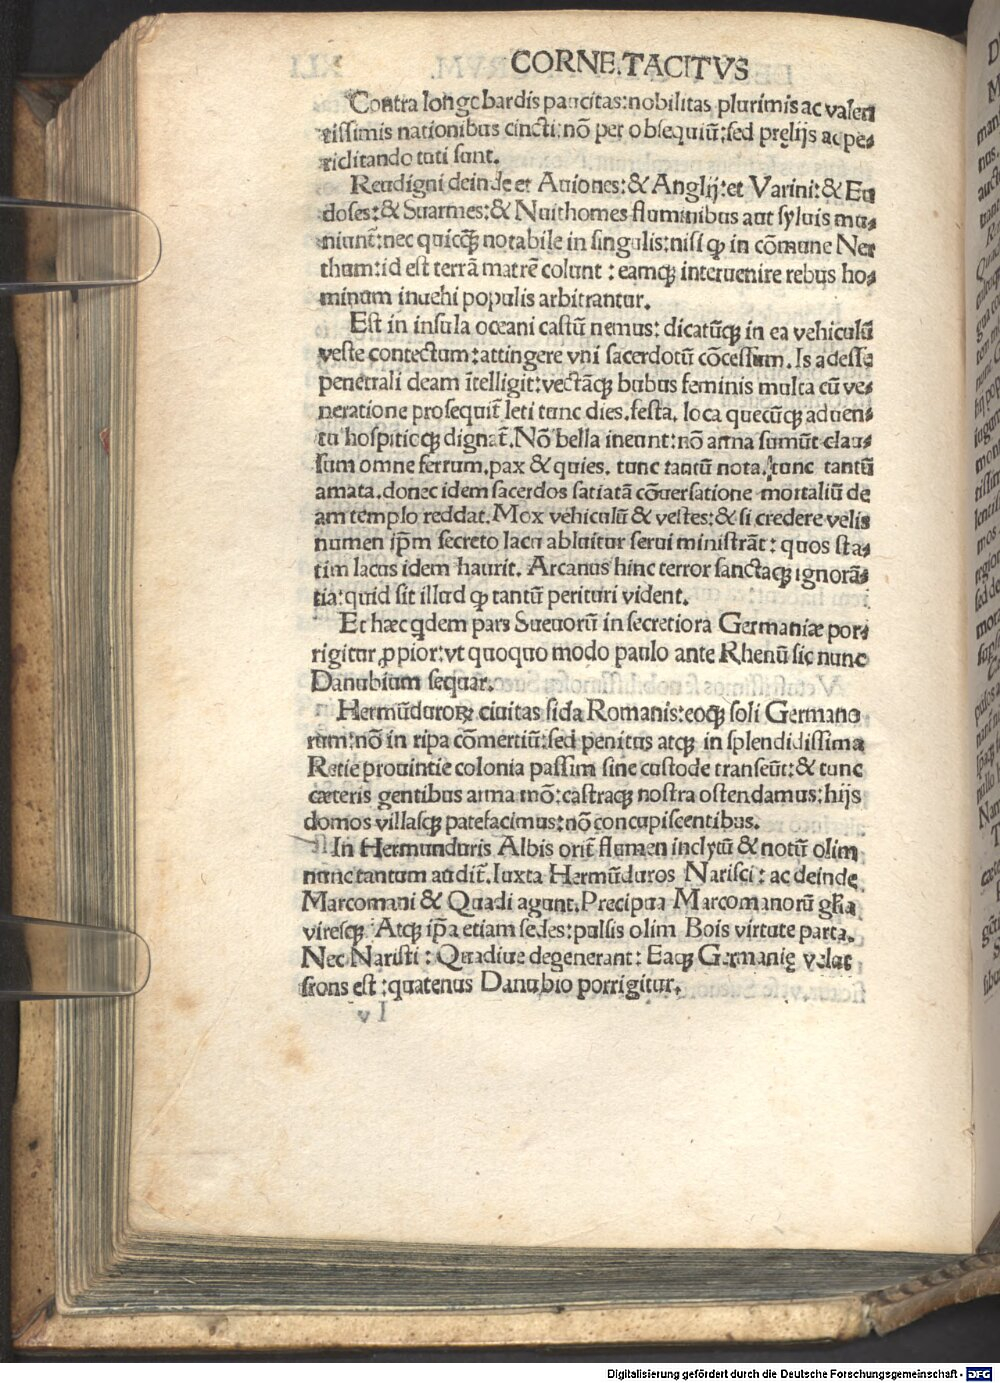 CORNE.TACITVS
Contra longebardis paucitas:nobilitas plurimis ac valen
tissimis nationibus cincti:nō per obsequiū:sed pręlijs ac pe⸗
riditando tuti sunt.
Reudigni deinde et Auiones:& Anglij:et Varini:& Eu
doses:& Suarmes:& Nuithomes fluminibus aut syluis mu⸗
niunt̄:nec quicq̄ꝫ notabile in singulis:nisi ꝙ in cōmune Ner
thum:id est terrā matrē colunt : eamqꝫ interuenire rebus ho⸗
minum inuehi populis arbitrantur.
Est in insula oceani castū nemus: dicatūqꝫ in ea vehiculū
veste contectum:attingere vni sacerdotū cōcessum. Is adesse
penetrali deam ītelligit:vectāqꝫ bubus feminis multa cū ve⸗
neratione prosequit̄ leti tunc dies.festa. loca quecūqꝫ aduen⸗
tu hospitioqꝫ dignat̄.Nō bella ineunt:nō arma sumūt clau⸗
sum omne ferrum.pax & quies. tunc tantū nota. tunc tantū
amata.donec idem sacerdos satiatā cōuersatione mortaliū de
am templo reddat.Mox vehiculū & vestes:& si credere velis
numen ip̄m secreto lacu abluitur serui ministrāt : quos sta⸗
tim lacus idem haurit. Arcanus hinc terror sanctaqꝫ ignorā⸗
tia:quid sit illud ꝙ tantū perituri vident.
Et hæc qdem pars Sueuorū in secretiora Germaniæ por⸗
rigitur ꝓpior:vt quoquo modo paulo ante Rhenū sic nunc
Danubium sequar.
Hermūduroꝝ ciuitas fida Romanis:eoqꝫ soli Germano
rum:nō in ripa cōmertiū:sed penitus atqꝫ in splendidissima
Retie prouintie colonia passim sine custode transeūt:& tunc
cæteris gentibus arma mō:castraqꝫ nostra ostendamus:hijs
domos villasqꝫ patefacimus:nō concupiscentibus.
In Hermunduris Albis orit̄ flumen inclytū & notū olim
nūnc tantum audit̄.Iuxta Hermūduros Narisci : ac deinde
Marcomani & Quadi agunt.Precipua Marcomanorū gl̄ia
viresqꝫ. Atqꝫ ip̄a etiam sedes:pulsis olim Bois virtute parta.
Nec Naristi : Quadiue degenerant: Eaqꝫ Germanię velut
frons est :quatenus Danubio porrigitur.
I v
Digitalisierung gefördert durch die Deutsche Forschungsgemeinschaft - DFG